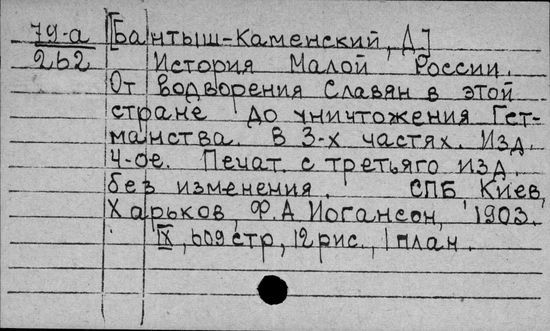 79-а [Бантыш-Каменский, Д.]
262 История Малой России.
От водворения Славян в этой
стране до уничтожения Гет-
манства. В 3-х частях. Изд.
4-ое. Печат. с третьяго изд.
без изменения. СПБ Киев,
Харьков, Ф.А Иогансон, 1903.
IX, 609 стр, 12 рис., 1 план.